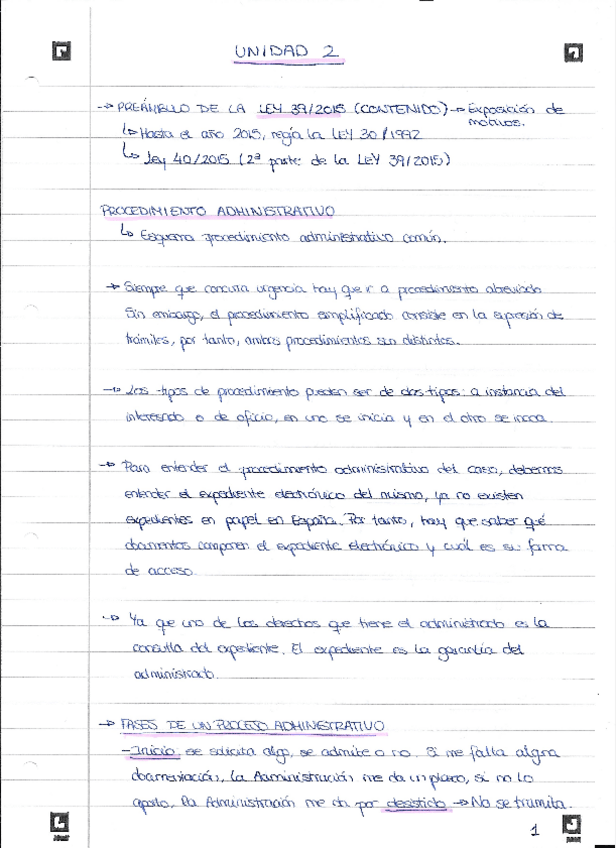 UNIDAD 2
→ PREÁMBULO DE LA LEY 39/2015 (CONTENIDO) → Exposición de
motivos.
↳ Hasta el año 2015, regía la LEY 30/1992
↳ Ley 40/2015 (2ª parte de la LEY 39/2015)
PROCEDIMIENTO ADMINISTRATIVO
↳ Esquema procedimiento administrativo común.
→ Siempre que concurra urgencia hay que ir a procedimiento abreviado
Sin embargo, el procedimiento simplificado consiste en la supresión de
trámites, por tanto, ambos procedimientos son distintos.
→ Los tipos de procedimiento pueden ser de dos tipos: a instancia del
interesado o de oficio, en uno se inicia y en el otro se incoa.
→ Para entender el procedimiento administrativo del caso, debemos
entender el expediente electrónico del mismo, ya no existen
expedientes en papel en España. Por tanto, hay que saber qué
documentos componen el expediente electrónico y cuál es su forma
de acceso.
→ Ya que uno de los derechos que tiene el administrado es la
consulta del expediente. El expediente es la garantía del
administrado.
→ FASES DE UN PROCESO ADMINISTRATIVO
- Inicio: se solicita algo, se admite o no. Si me falta alguna
documentación, la Administración me da un plazo, si no lo
aporto, la Administración me da por desistido → No se tramita.
1